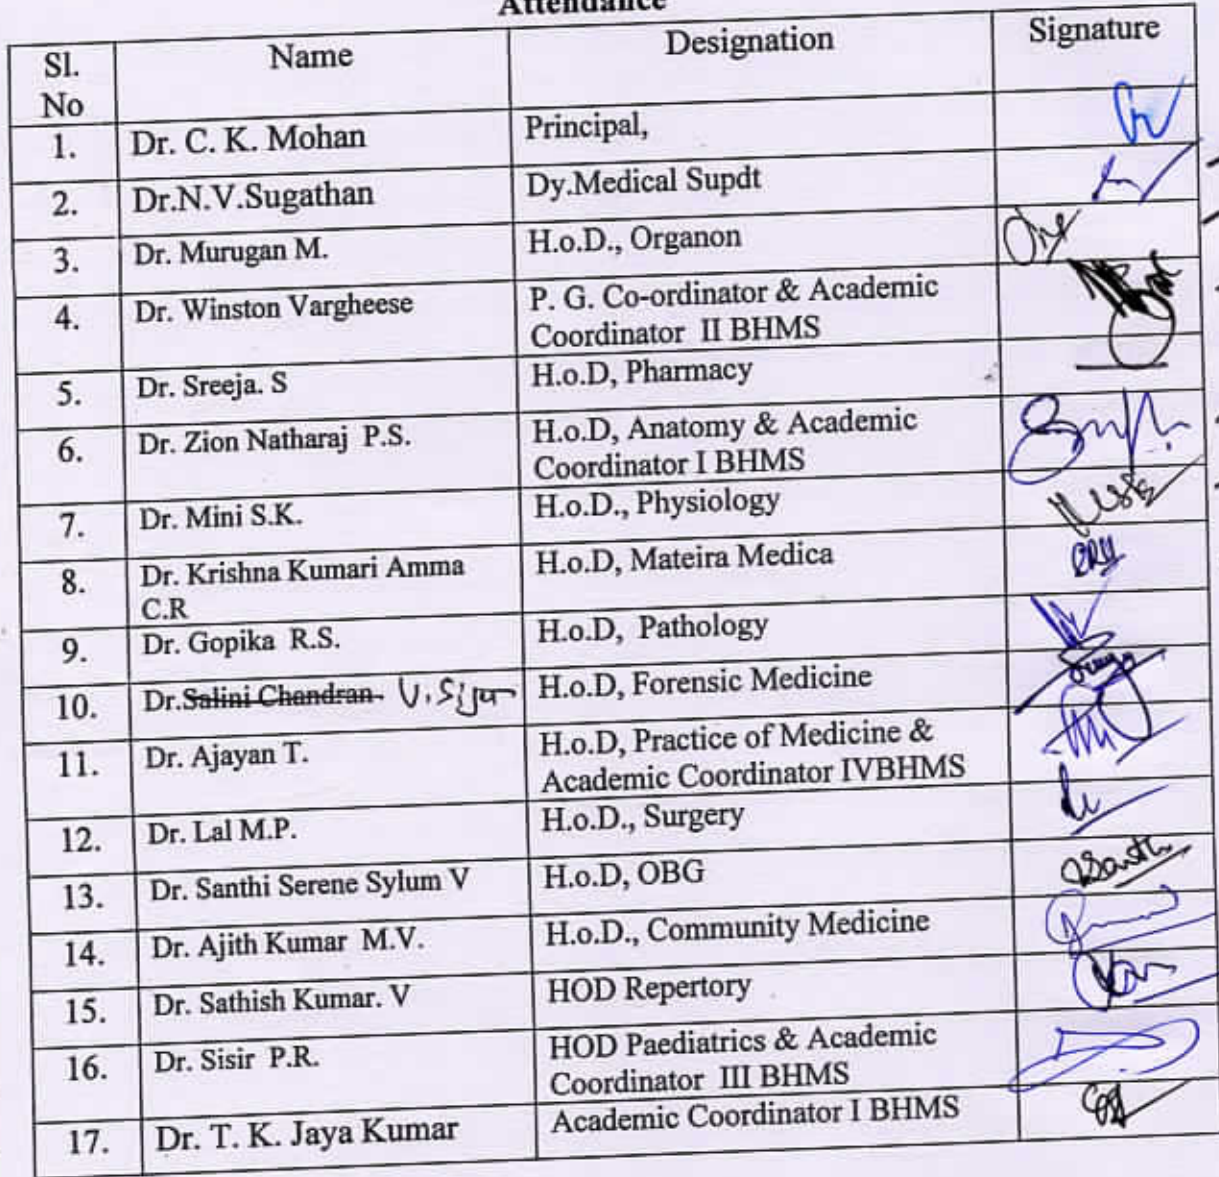 Attendance
Sl. No Name Designation Signature
1. Dr. C. K. Mohan Principal,
2. Dr.N.V.Sugathan Dy.Medical Supdt
3. Dr. Murugan M. H.o.D., Organon
4. Dr. Winston Vargheese P. G. Co-ordinator & Academic
Coordinator II BHMS
5. Dr. Sreeja. S H.o.D, Pharmacy
6. Dr. Zion Natharaj P.S. H.o.D, Anatomy & Academic
Coordinator I BHMS
7. Dr. Mini S.K. H.o.D., Physiology
8. Dr. Krishna Kumari Amma H.o.D, Mateira Medica
C.R
9. Dr. Gopika R.S. H.o.D, Pathology
10. Dr.Salini Chandran H.o.D, Forensic Medicine
11. Dr. Ajayan T. H.o.D, Practice of Medicine &
Academic Coordinator IVBHMS
12. Dr. Lal M.P. H.o.D., Surgery
13. Dr. Santhi Serene Sylum V H.o.D, OBG
14. Dr. Ajith Kumar M.V. H.o.D., Community Medicine
15. Dr. Sathish Kumar. V HOD Repertory
16. Dr. Sisir P.R. HOD Paediatrics & Academic
Coordinator III BHMS
17. Dr. T. K. Jaya Kumar Academic Coordinator I BHMS